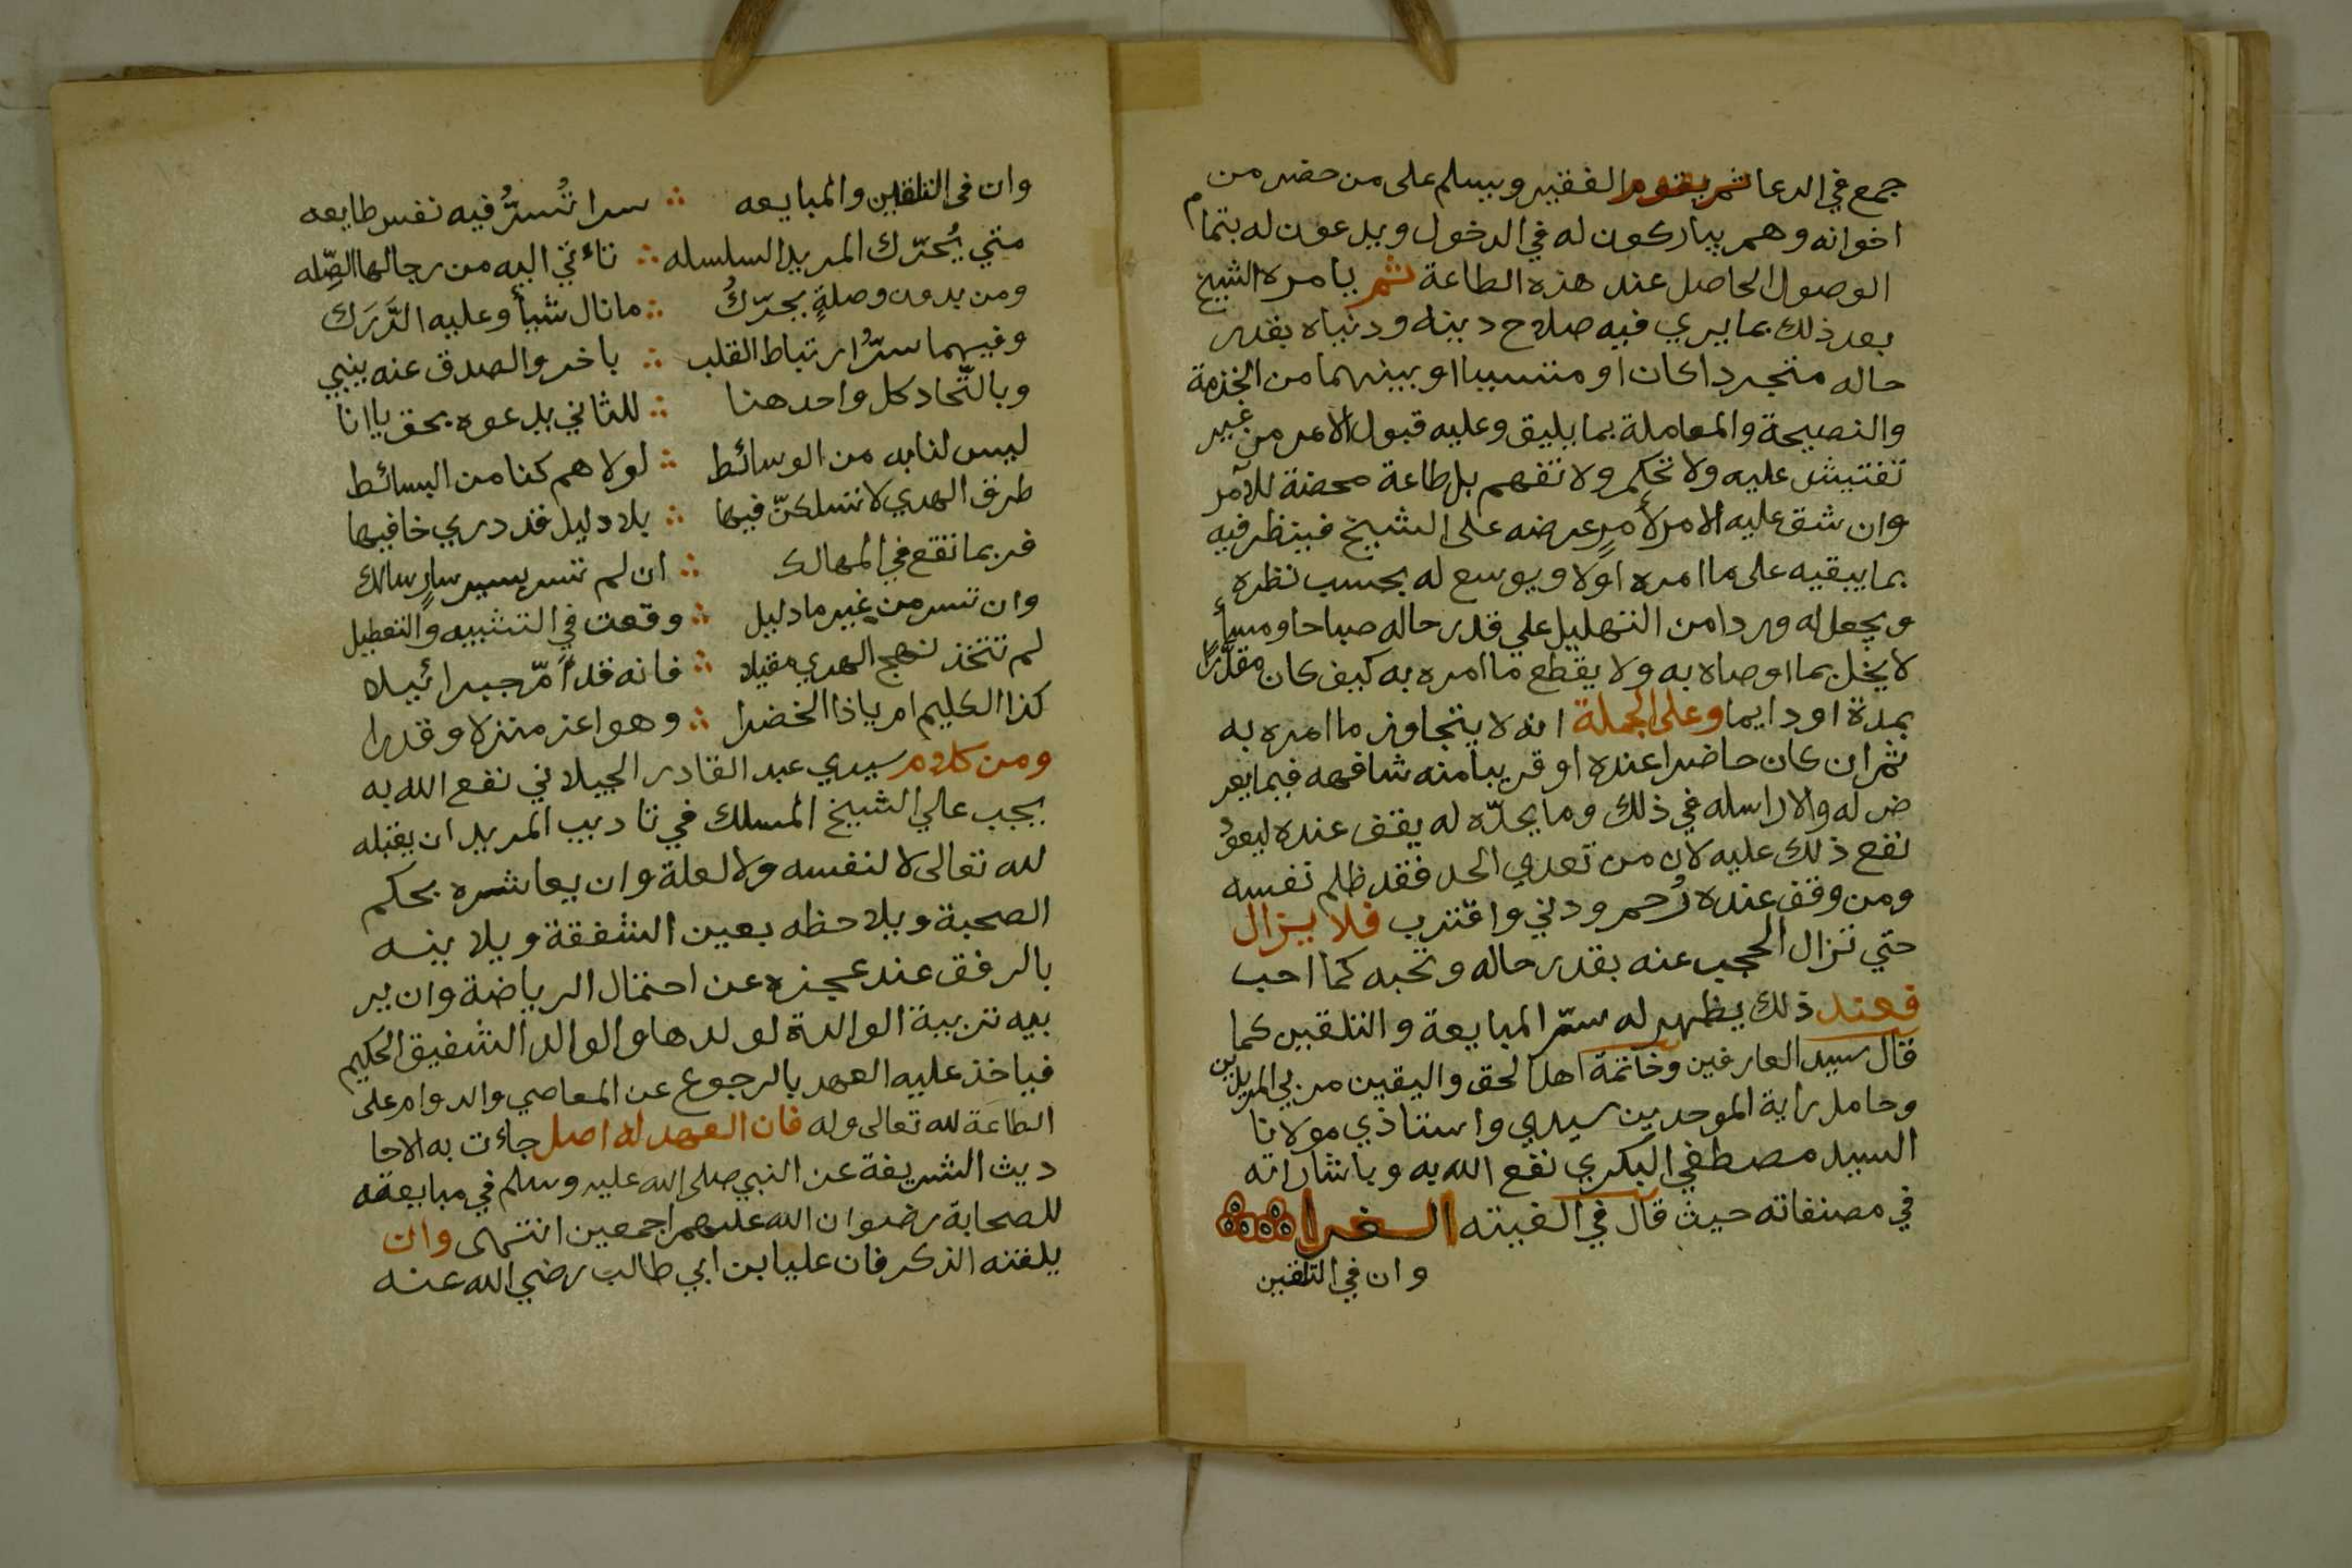 جمع في الدعا ثم يقوم الفقير ويسلم على من حضر من
اخوانه وهم يباركون له في الدخول ويدعون له بتمام
الوصول الحاصل عند هذه الطاعة ثم يامره الشيخ
بعد ذلك بما يري فيه صلاح دينه ودنياه بقدر
حاله متجردا كان او متسببا او بينهما من الخدمة
والنصيحة والمعاملة بما يليق وعليه قبول الامر من غير
تفتيش عليه ولا تحكم ولا تفهم بل طاعة محضة للآمر
وان شق عليه الامر لأمرٍ عرضه على الشيخ فينظر فيه
بما يبقيه على ما امره اولا ويوسع له بحسب نظره
ويجعل له وردا من التهليل علي قدر حاله صباحا ومسأ
لا يخل بما اوصاه به ولا يقطع ما امره به كيف كان مقدَّرًا
بمدة او دايما وعلى الجملة انه لا يتجاوز ما امره به
ثم ان كان حاضرا عنده او قريبا منه شافهه فيما يعر
ض له والا راسله في ذلك وما يحدّه له يقف عنده ليعوُ
نفع ذلك عليه لان من تعدي الحد فقد ظلم نفسه
ومن وقف عنده رُحم ودني واقترب فلا يزال
حتي تزال الحجب عنه بقدر حاله ونحبه كما احب
فعند ذلك يظهر له سرّ المبايعة والتلقين كما
قال سيد العارفين وخاتمة اهل الحق واليقين مربي المريدين
وحامل راية الموحدين سيدي واستاذي مولانا
السيد مصطفي البكري نفع الله به وباشاراته
في مصنفاته حيث قال في الفيته الغرا
وان في التلقين
وان في التلقين والمبايعه ∴ سرا تُسرُّ فيه نفس طايعه
متي يُحرّك المريد السلسله ∴ تاءتي اليه من رجالها الصِّله
ومن بدون وصلةٍ يحرّكُ ∴ ما نال شيأ وعليه الدَّرَك
وفيهما سرُّ ارتباط القلب ∴ باخر والصدق عنه ينبي
وبالتّحاد كل واحد هنا ∴ للثاني يدعوه بحق يا انا
ليس لنا به من الوسائط ∴ لولاهم كنا من البسائط
طرق الهدي لا تسلكنّ فيها ∴ بلا دليل قد دري خافيها
فربما تقع في المهالك ∴ ان لم تسر بسير سارٍ سالك
وان تسر من غير ما دليل ∴ وقعت في التشبيه والتعطيل
لم تتخذ نهج الهدي مقيلا ∴ فانه قد أمّ جبرائيلا
كذا الكليم امر ياذا الخضرا ∴ وهو اعز منزلا وقدرا
ومن كلام سيدي عبد القادر الجيلاني نفع الله به
يجب عالي الشيخ المسلك في تاديب المريد ان يقبله
لله تعالى لا لنفسه ولا لعلة وان يعاشره بحكم
الصحبة ويلاحظه بعين الشفقة ويلاينه
بالرفق عند عجزه عن احتمال الرياضة وان ير
بيه تربية الوالدة لولدها والوالد الشفيق الحكيم
فياخذ عليه العهد بالرجوع عن المعاصي والدوام على
الطاعة لله تعالى وله فان العهد له اصل جاءت به الاحا
ديث الشريفة عن النبي صلى الله عليه وسلم في مبايعته
للصحابة رضوان الله عليهم اجمعين انتهى وان
يلقنه الذكر فان عليا بن ابي طالب رضي الله عنه